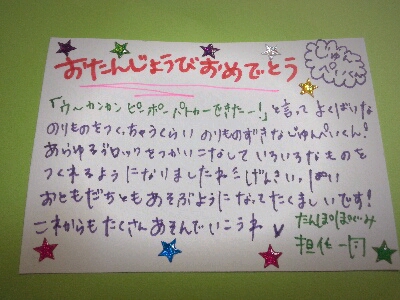 おたんじょうびおめでとう
じゅんぺいくん
「う〜カンカンピーポーパトカーできたー!」と言って よくばいな
のりものをつくっちゃうくらい のりものずきなじゅんぺいくん!
あらゆるブロックをつかいこなして いろいろなものを
つくれるように なりましたね♡げんきいっぱい
おともだちとも あそぶようになってたくましいです!
これからもたくさんあそんでいこうね
たんぽぽぐみ
担任一同